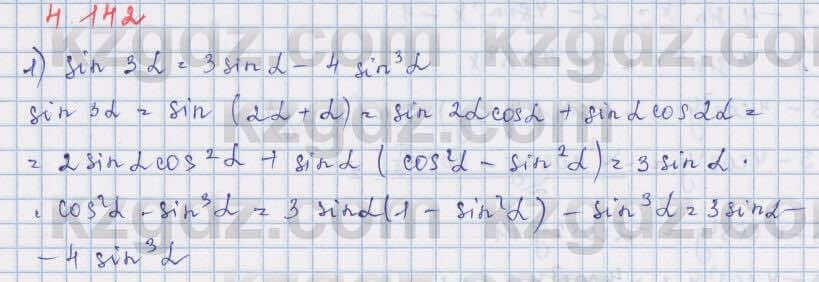 4.142
1) sin 3α = 3 sin α - 4 sin³α
sin 3α = sin (2α + α) = sin 2α cos α + sin α cos 2α =
= 2 sin α cos²α + sin α (cos²α - sin²α) = 3 sin α ·
· cos²α - sin³α = 3 sin α (1 - sin²α) - sin³α = 3 sin α -
- 4 sin³α
kzgdz.com kzgdz.com
kzgdz.com
kzgdz.com kzgdz.com